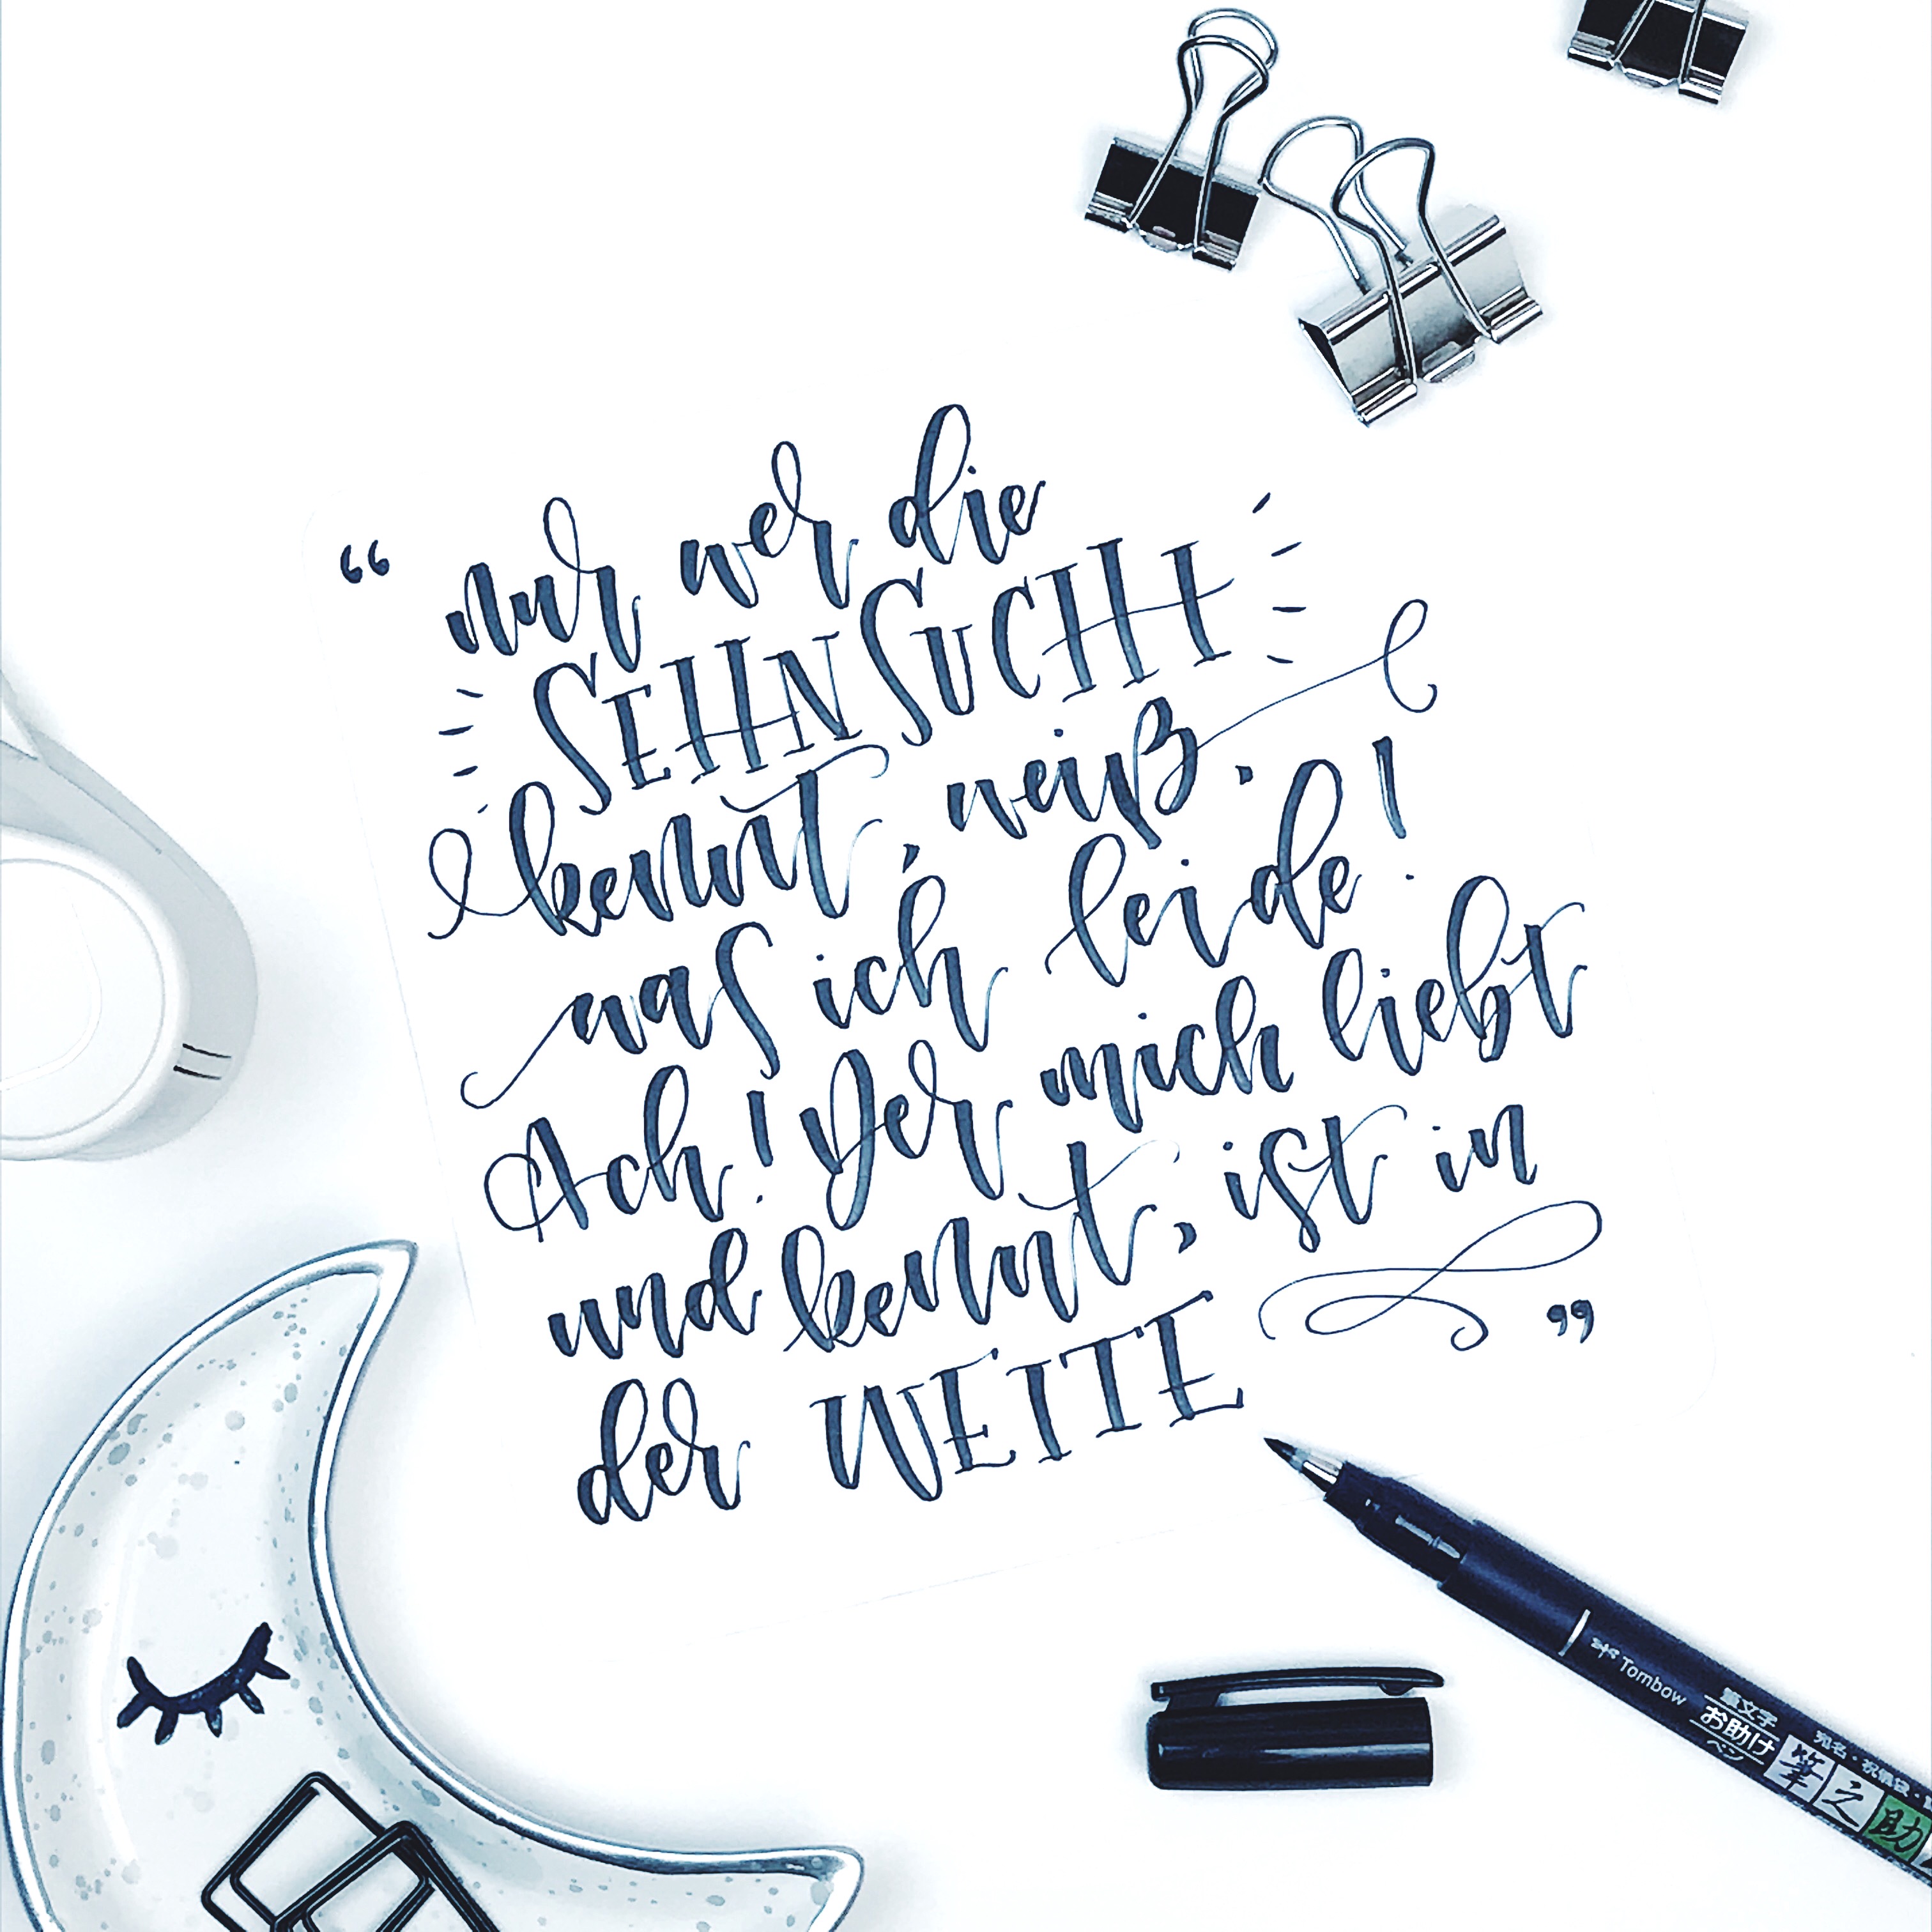 “ nur wer die
SEHNSUCHT
kennt, weiß.
was ich leide!
Ach! Der mich liebt
und kennt, ist in
der WEITE ”
Tombow
筆文字
お助け
ペン
宛名・祝儀袋・
筆之助